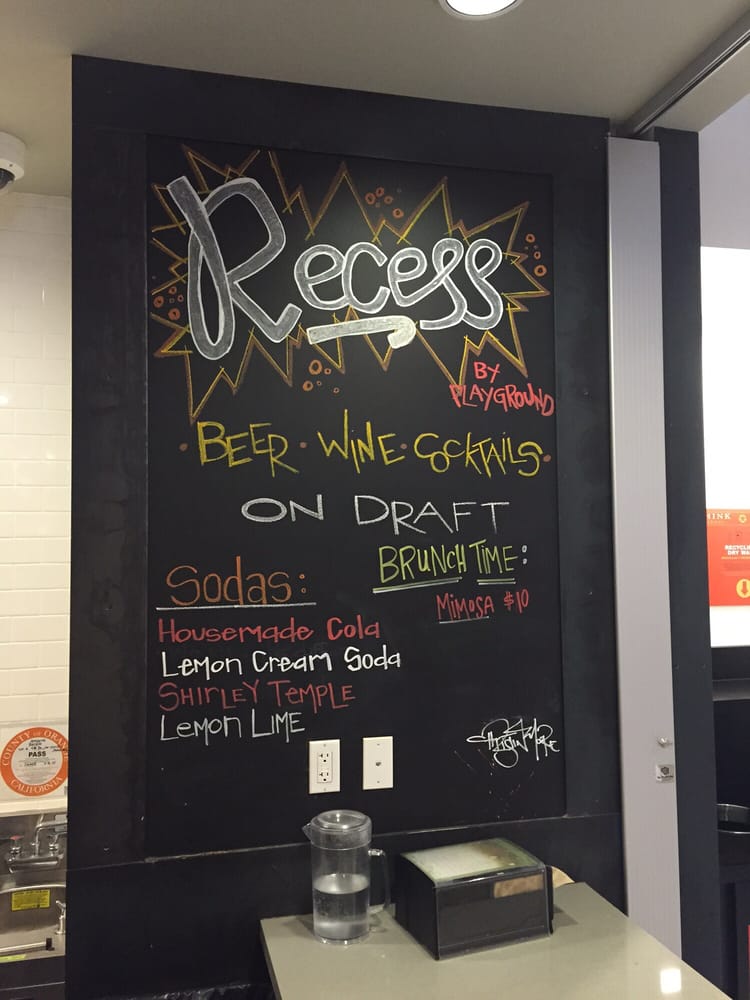 Recess
BY
PLAYGROUND
· BEER · WINE · COCKTAILS ·
ON DRAFT
BRUNCH TIME:
MIMOSA $10
Sodas:
Housemade Cola
Lemon Cream Soda
SHIRLEY TEMPLE
Lemon Lime
COUNTY OF ORANGE
PASS
CALIFORNIA